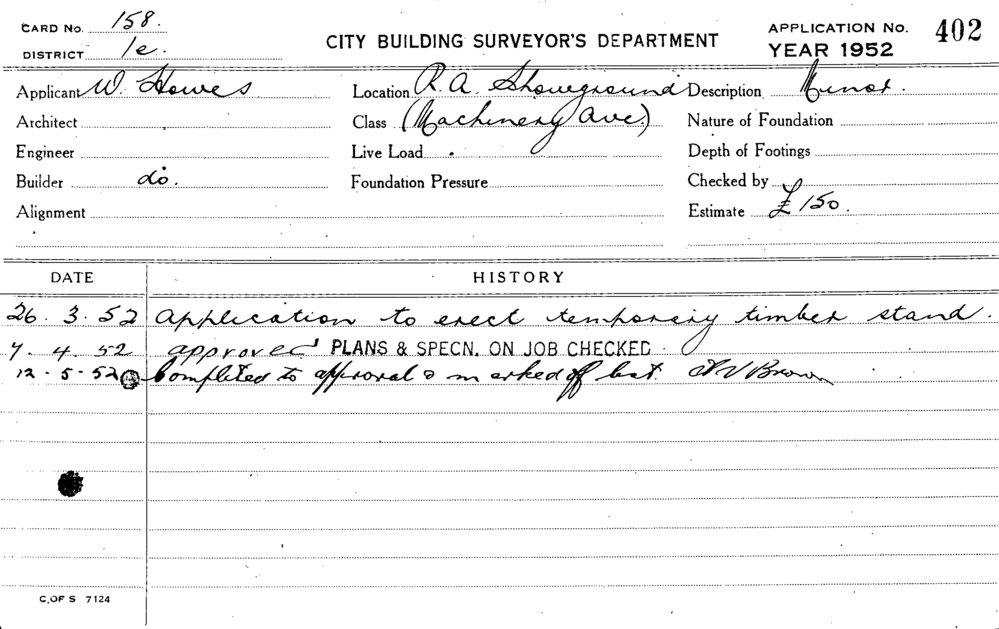 CARD No. 158.
DISTRICT 1e.
CITY BUILDING SURVEYOR'S DEPARTMENT
APPLICATION No. 402
YEAR 1952
Applicant W. Howes Location R.A. Showground Description Minor.
Architect Class (Machinery Ave.) Nature of Foundation
Engineer Live Load Depth of Footings
Builder do. Foundation Pressure Checked by
Alignment Estimate £150.
DATE HISTORY
26.3.52 Application to erect temporary timber stand.
7.4.52 approved PLANS & SPECN. ON JOB CHECKED
12-5-52 Completed to approval & marked off list. Brown
C. OF S 7124